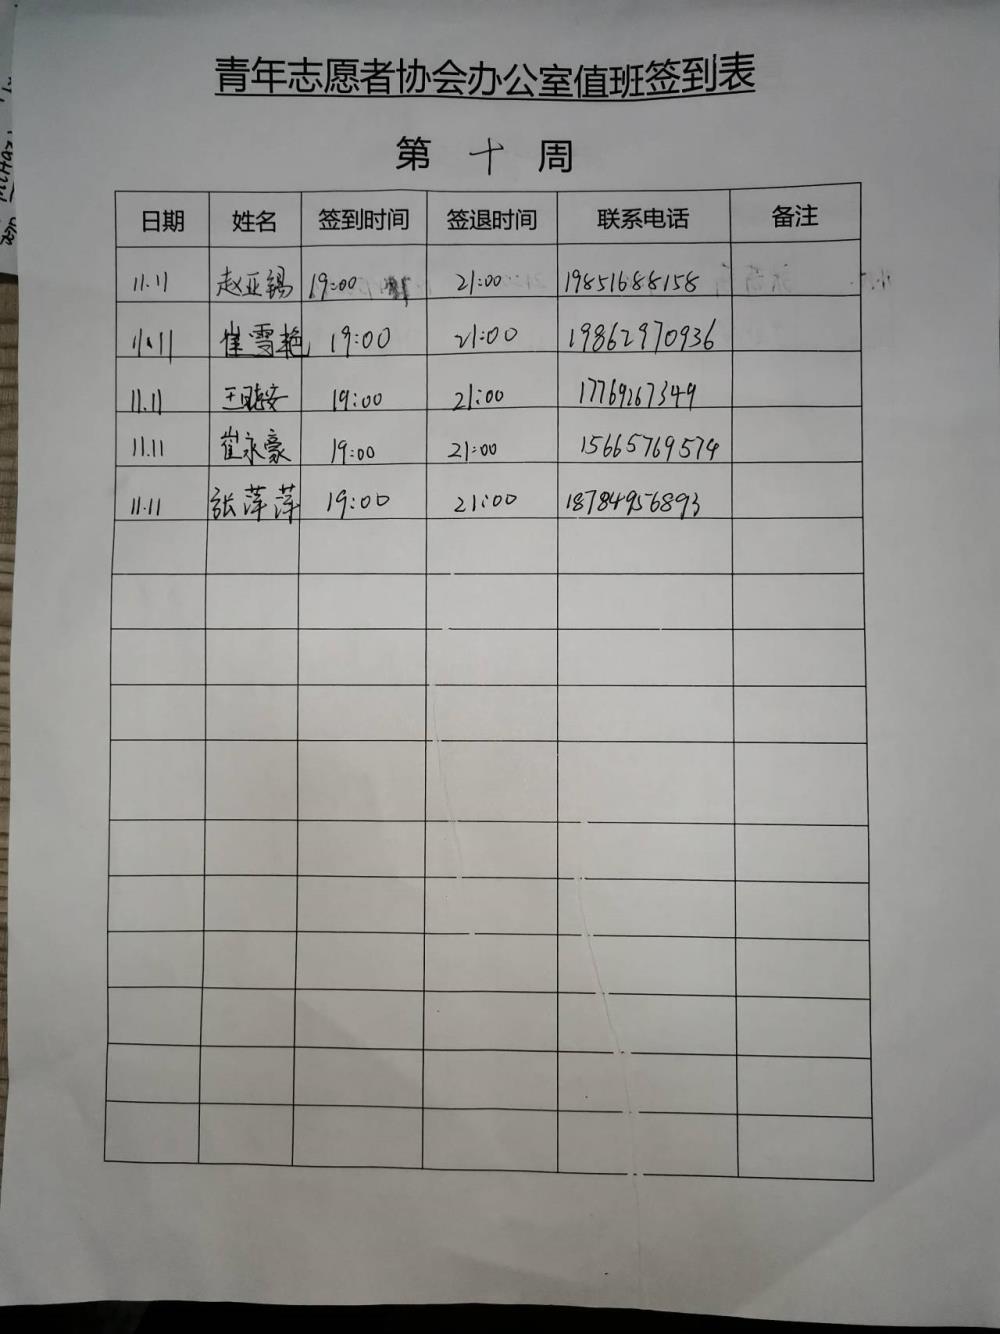 青年志愿者协会办公室值班签到表
第 十 周
日期 姓名 签到时间 签退时间 联系电话 备注
11.11 赵亚锡 19:00 21:00 19851688158
11.11 崔雪艳 19:00 21:00 19862970936
11.11 王 19:00 21:00 17769267349
11.11 崔永豪 19:00 21:00 15665769574
11.11 张萍萍 19:00 21:00 18784956893